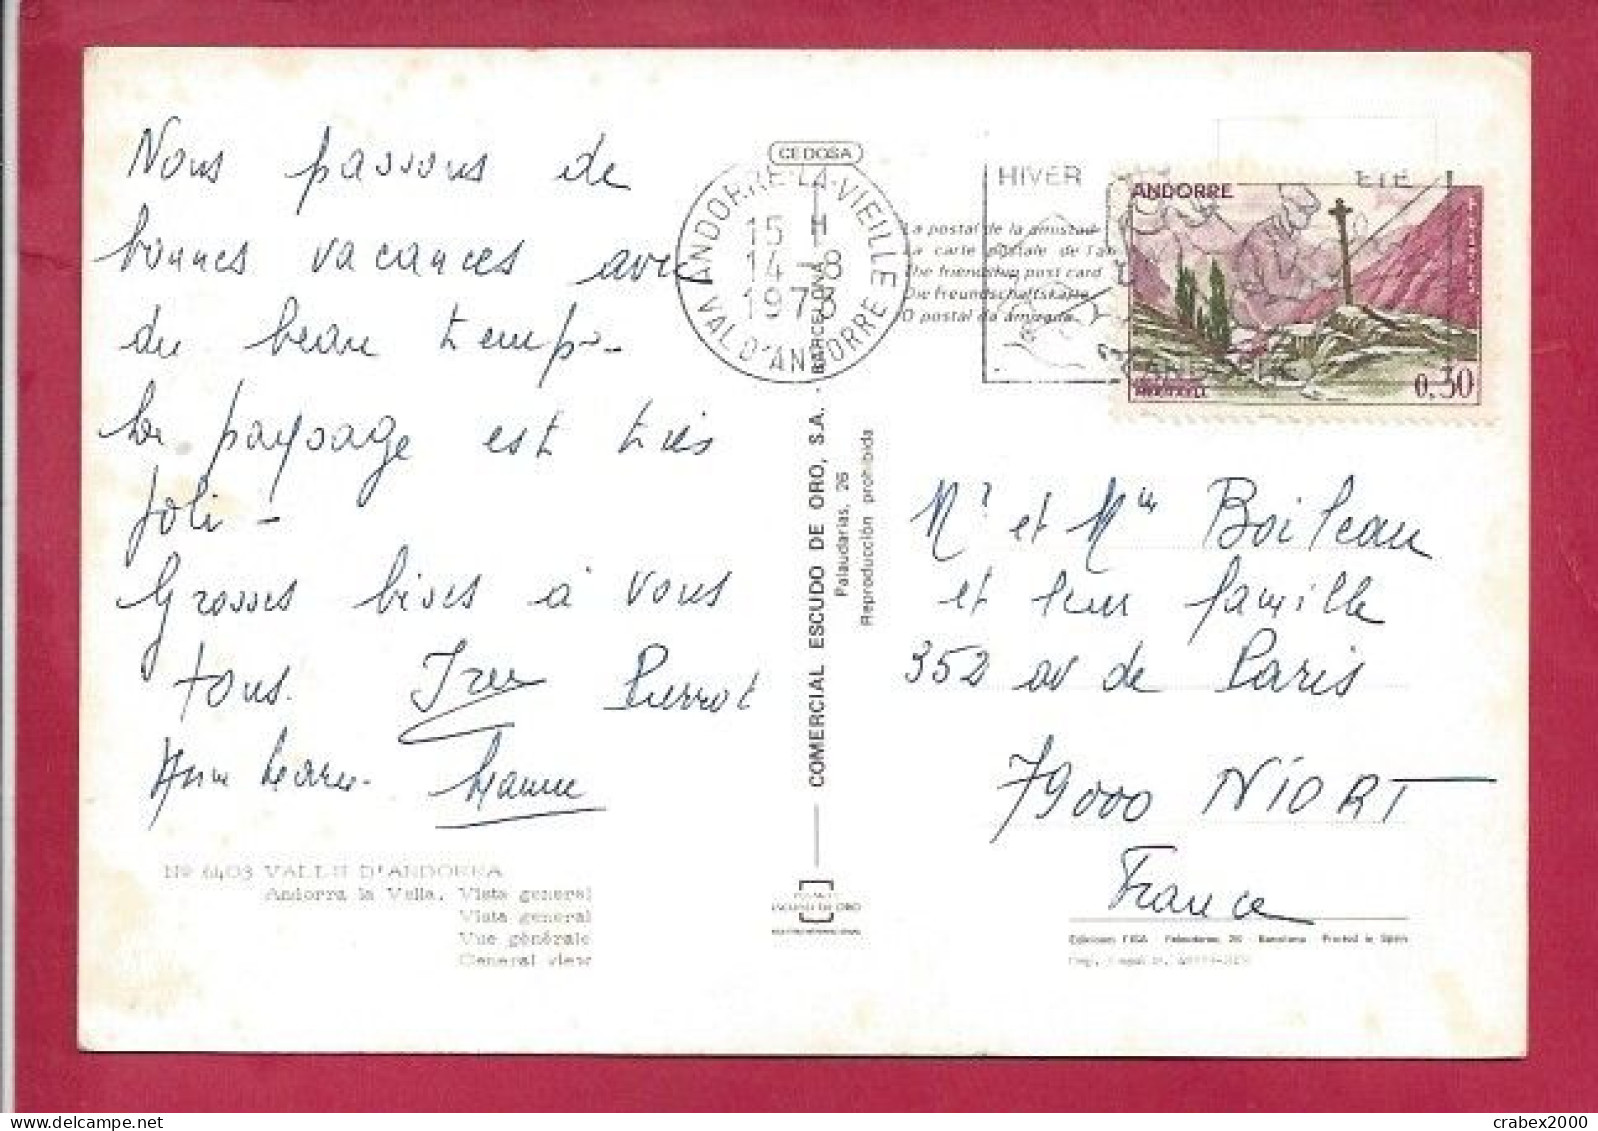 Nous passons de
bonnes vacances avec
du beau temps -
Le paysage est très
joli -
Grosses bises à vous
tous. Pierrot
Ann Marie -
Nº 6403 VALLS D'ANDORRA
Andorra la Vella. Vista general
Vista general
Vue générale
General view
CEDOSA
ANDORRE-LA-VIEILLE
15 H
14 -8
1973
VAL D'ANDORRE
COMERCIAL ESCUDO DE ORO, S.A. - BARCELONA
Palaudarias, 26
Reproducción prohibida
ESCUDO DE ORO
La postal de la amistad
La carte postale de l'am
The friendship post card
Die Freundschaftskarte
O postal da amizade
HIVER ETE
ANDORRE
0,30
Mr et Mme Boileau
et leur famille
352 av de Paris
79000 NIORT
France
Ediciones FISA - Palaudarias, 26 - Barcelona - Printed in Spain
crabex2000